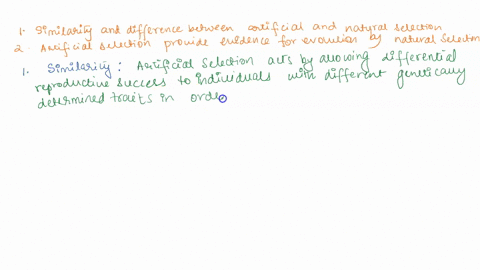 1. Similarity and difference between artificial and natural selection
2. Artificial selection provide evidence for evolution by natural selection
1. Similarity : Artificial Selection acts by allowing differential
reproductive success to individuals with different genetically
determined traits in orde